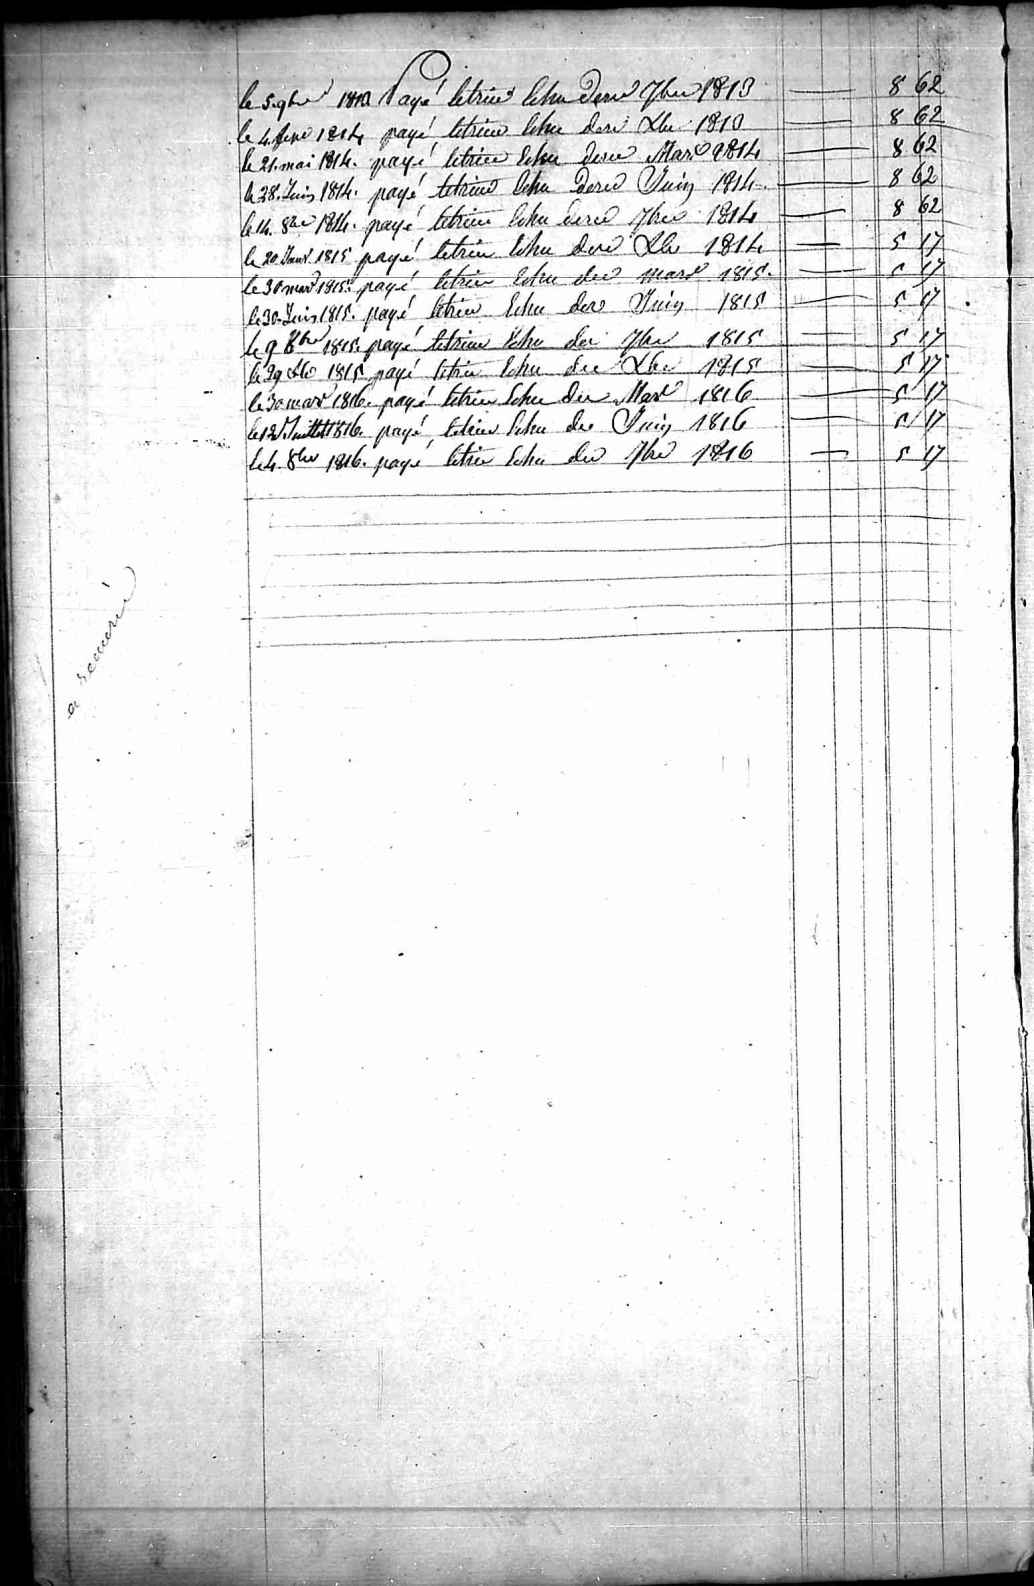 le 5. 9bre 1813 Payé letrim Echu dere 7bre 1813 8 62
le 4 fevr 1814 payé letrim Echu dere Xbr 1813 8 62
le 21. mai 1814. payé letrim Echu dere Mars 1814 8 62
le 28. Juin 1814. payé letrim Echu dere Juin 1814. 8 62
le 14. 8bre 1814. payé letrim Echu dere 7bre 1814 8 62
le 20 Janv. 1815 payé letrim Echu dere Xbr 1814 5 17
le 30 mars 1815. payé letrim Echu der mars 1815. 5 17
le 30. Juin 1815. payé letrim Echu der Juin 1815 5 17
le 9 8bre 1815. payé letrim Echu der 7bre 1815 5 17
le 29 Xbr 1815 payé letrim Echu der Xbr 1815 5 17
le 30 mars 1816. payé letrim Echu der Mars 1816 5 17
le 12 Juillet 1816. payé letrim Echu der Juin 1816 5 17
le 4. 8bre 1816. payé letrim Echu der 7bre 1816 5 17